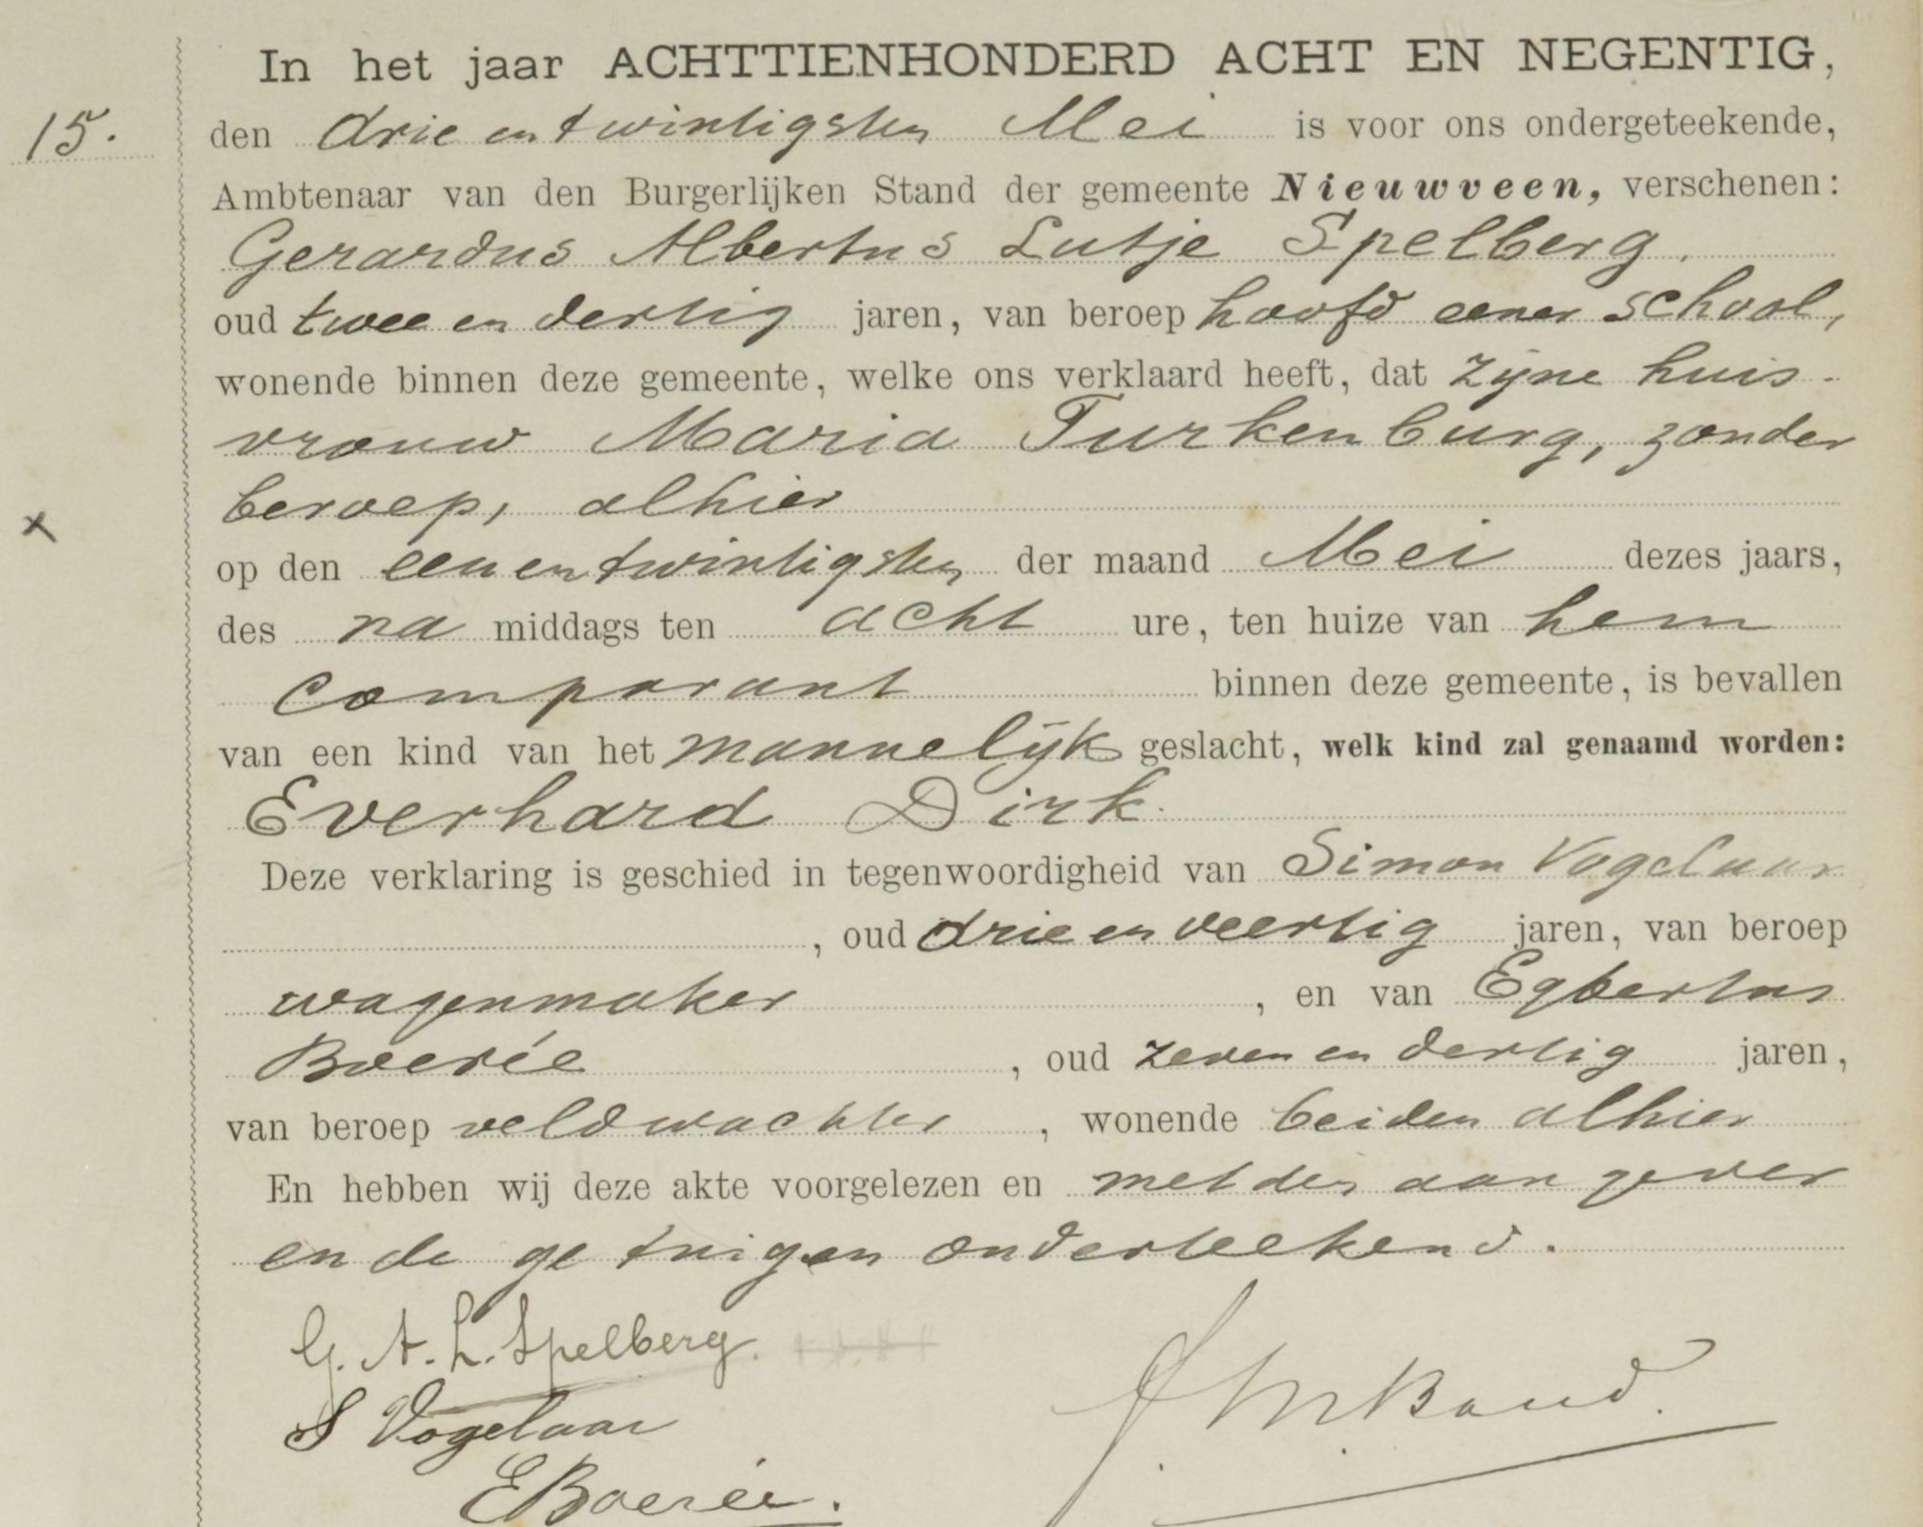 In het jaar ACHTTIENHONDERD ACHT EN NEGENTIG,
15. den drie en twintigsten Mei is voor ons ondergeteekende,
Ambtenaar van den Burgerlijken Stand der gemeente Nieuwveen, verschenen:
Gerardus Albertus Lutje Spelberg,
oud twee en dertig jaren, van beroep hoofd eener school,
wonende binnen deze gemeente, welke ons verklaard heeft, dat zijne huis-
vrouw Maria Turkenburg, zonder
beroep, alhier
op den een en twintigsten der maand Mei dezes jaars,
des na middags ten acht ure, ten huize van hem
comparant binnen deze gemeente, is bevallen
van een kind van het mannelijk geslacht, welk kind zal genaamd worden:
Everhard Dirk.
Deze verklaring is geschied in tegenwoordigheid van Simon Vogelaar
, oud drie en veertig jaren, van beroep
wagenmaker , en van Egbertus
Boerée , oud zeven en dertig jaren,
van beroep veldwachter , wonende beiden alhier
En hebben wij deze akte voorgelezen en met den aangever
en de getuigen onderteekend.
G. A. L. Spelberg.
S Vogelaar
E Boerée.